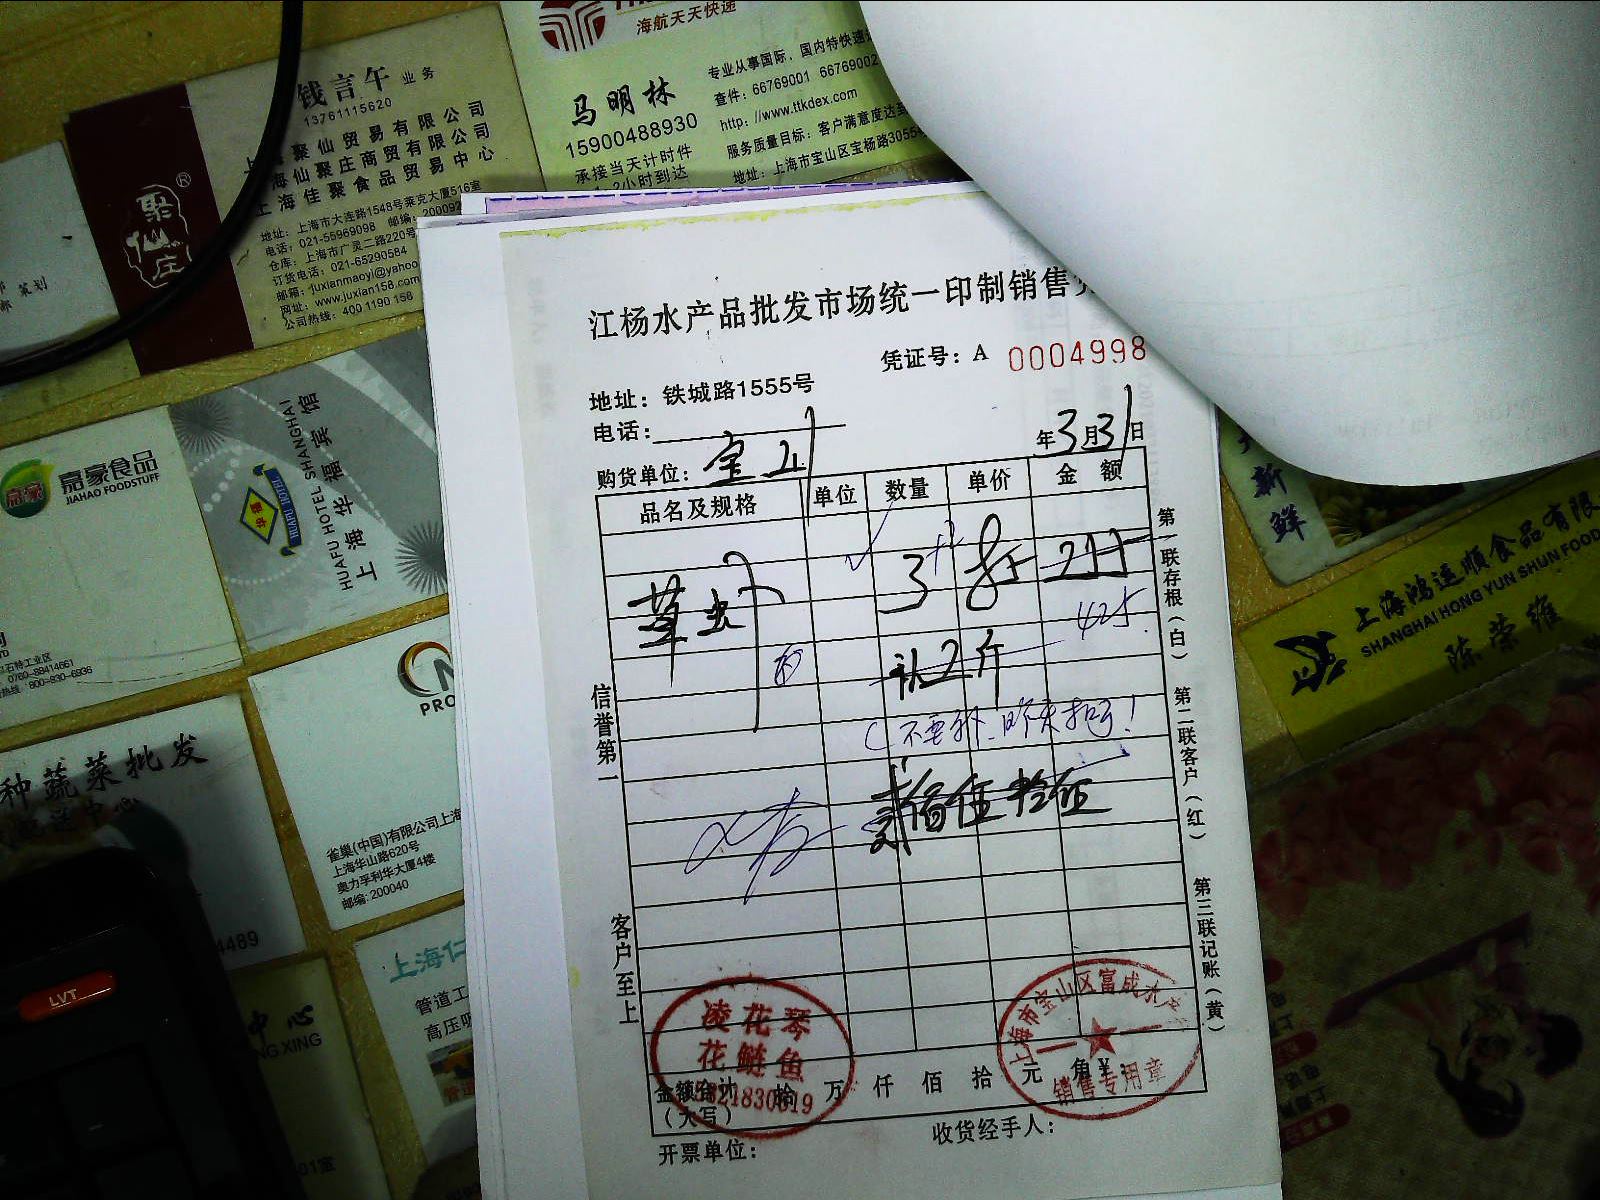 钱言午 业务
13761115620
聚仙贸易有限公司
海仙聚庄商贸有限公司
上海佳聚食品贸易中心
地址：上海市大连路1548号莱克大厦516室
电话：021-55969098 邮编：200092
仓库：上海市广灵二路220号
订货电话：021-65290584
邮箱：juxianmaoyi@yahoo
网址：www.juxian158.com
公司热线：400 1190 158
聚仙庄®
策划
海航天天快递
马明林
15900488930
承接当天计时件
2小时到达
专业从事国际、国内特快速
查件：66769001 66769002
http：//www.ttkdex.com
服务质量目标：客户满意度达到
地址：上海市宝山区宝杨路3055
嘉豪
嘉豪食品
JIAHAO FOODSTUFF
石特工业区
0760-88414661
热线：800-830-6936
华福
HUAFU HOTEL
HUAFU HOTEL SHANGHAI
上海华福宾馆
PRO
雀巢(中国)有限公司上海
上海华山路620号
奥力孚利华大厦4楼
邮编：200040
种蔬菜批发
配送中心
4489
上海仁
管道工
高压
中心
NG XING
01室
LVT
江杨水产品批发市场统一印制销售
凭证号：A 0004998
地址：铁城路1555号
电话：
年3月31日
购货单位：宝山
品名及规格 单位 数量 单价 金额
草虫
3 85 255
425
认2斤
(不要补、昨天扣了！
贰佰伍拾伍
信誉第一
客户至上
第一联存根（白）
第二联客户（红）
第三联记账（黄）
凌花琴
花鲢鱼
上海市宝山区富成水产
销售专用章
金额合计 拾 万 仟 佰 拾 元 角 ¥：
（大写）
收货经手人：
开票单位：
新鲜
上海鸿运顺食品有限
SHANGHAI HONG YUN SHUN FOOD
陈荣维